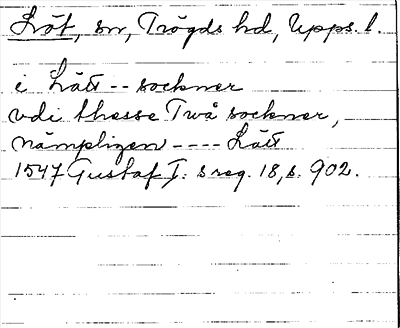 Löt, sn, Trögds hd, Upps. l.
i Lätt -- sockner
vdi thesse Twå sockner,
nämpligen ---- Lätt
1547 Gustaf I:s reg. 18, s. 902.